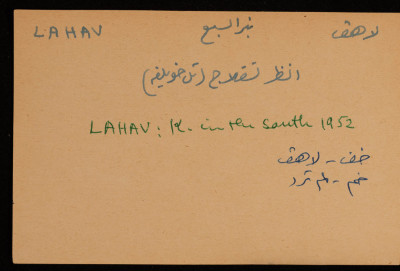 LAHAV بئر السبع لاهڤ
انظر تسقلاج (تل خويلفه)
LAHAV: K. in the south 1952
خف - لاهڤ
خم - لم ترد